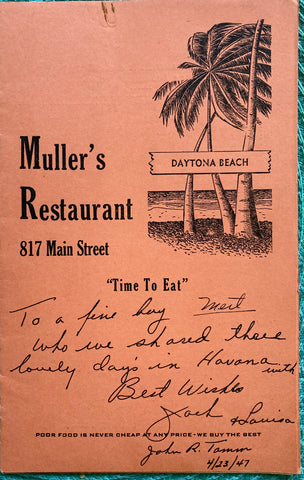 DAYTONA BEACH
Muller's
Restaurant
817 Main Street
"Time To Eat"
To a fine boy Mert
who we shared these
lovely day's in Havana with
Best Wishes
Jack
& Louisa
POOR FOOD IS NEVER CHEAP AT ANY PRICE - WE BUY THE BEST
John R. Tamm
4/23/47